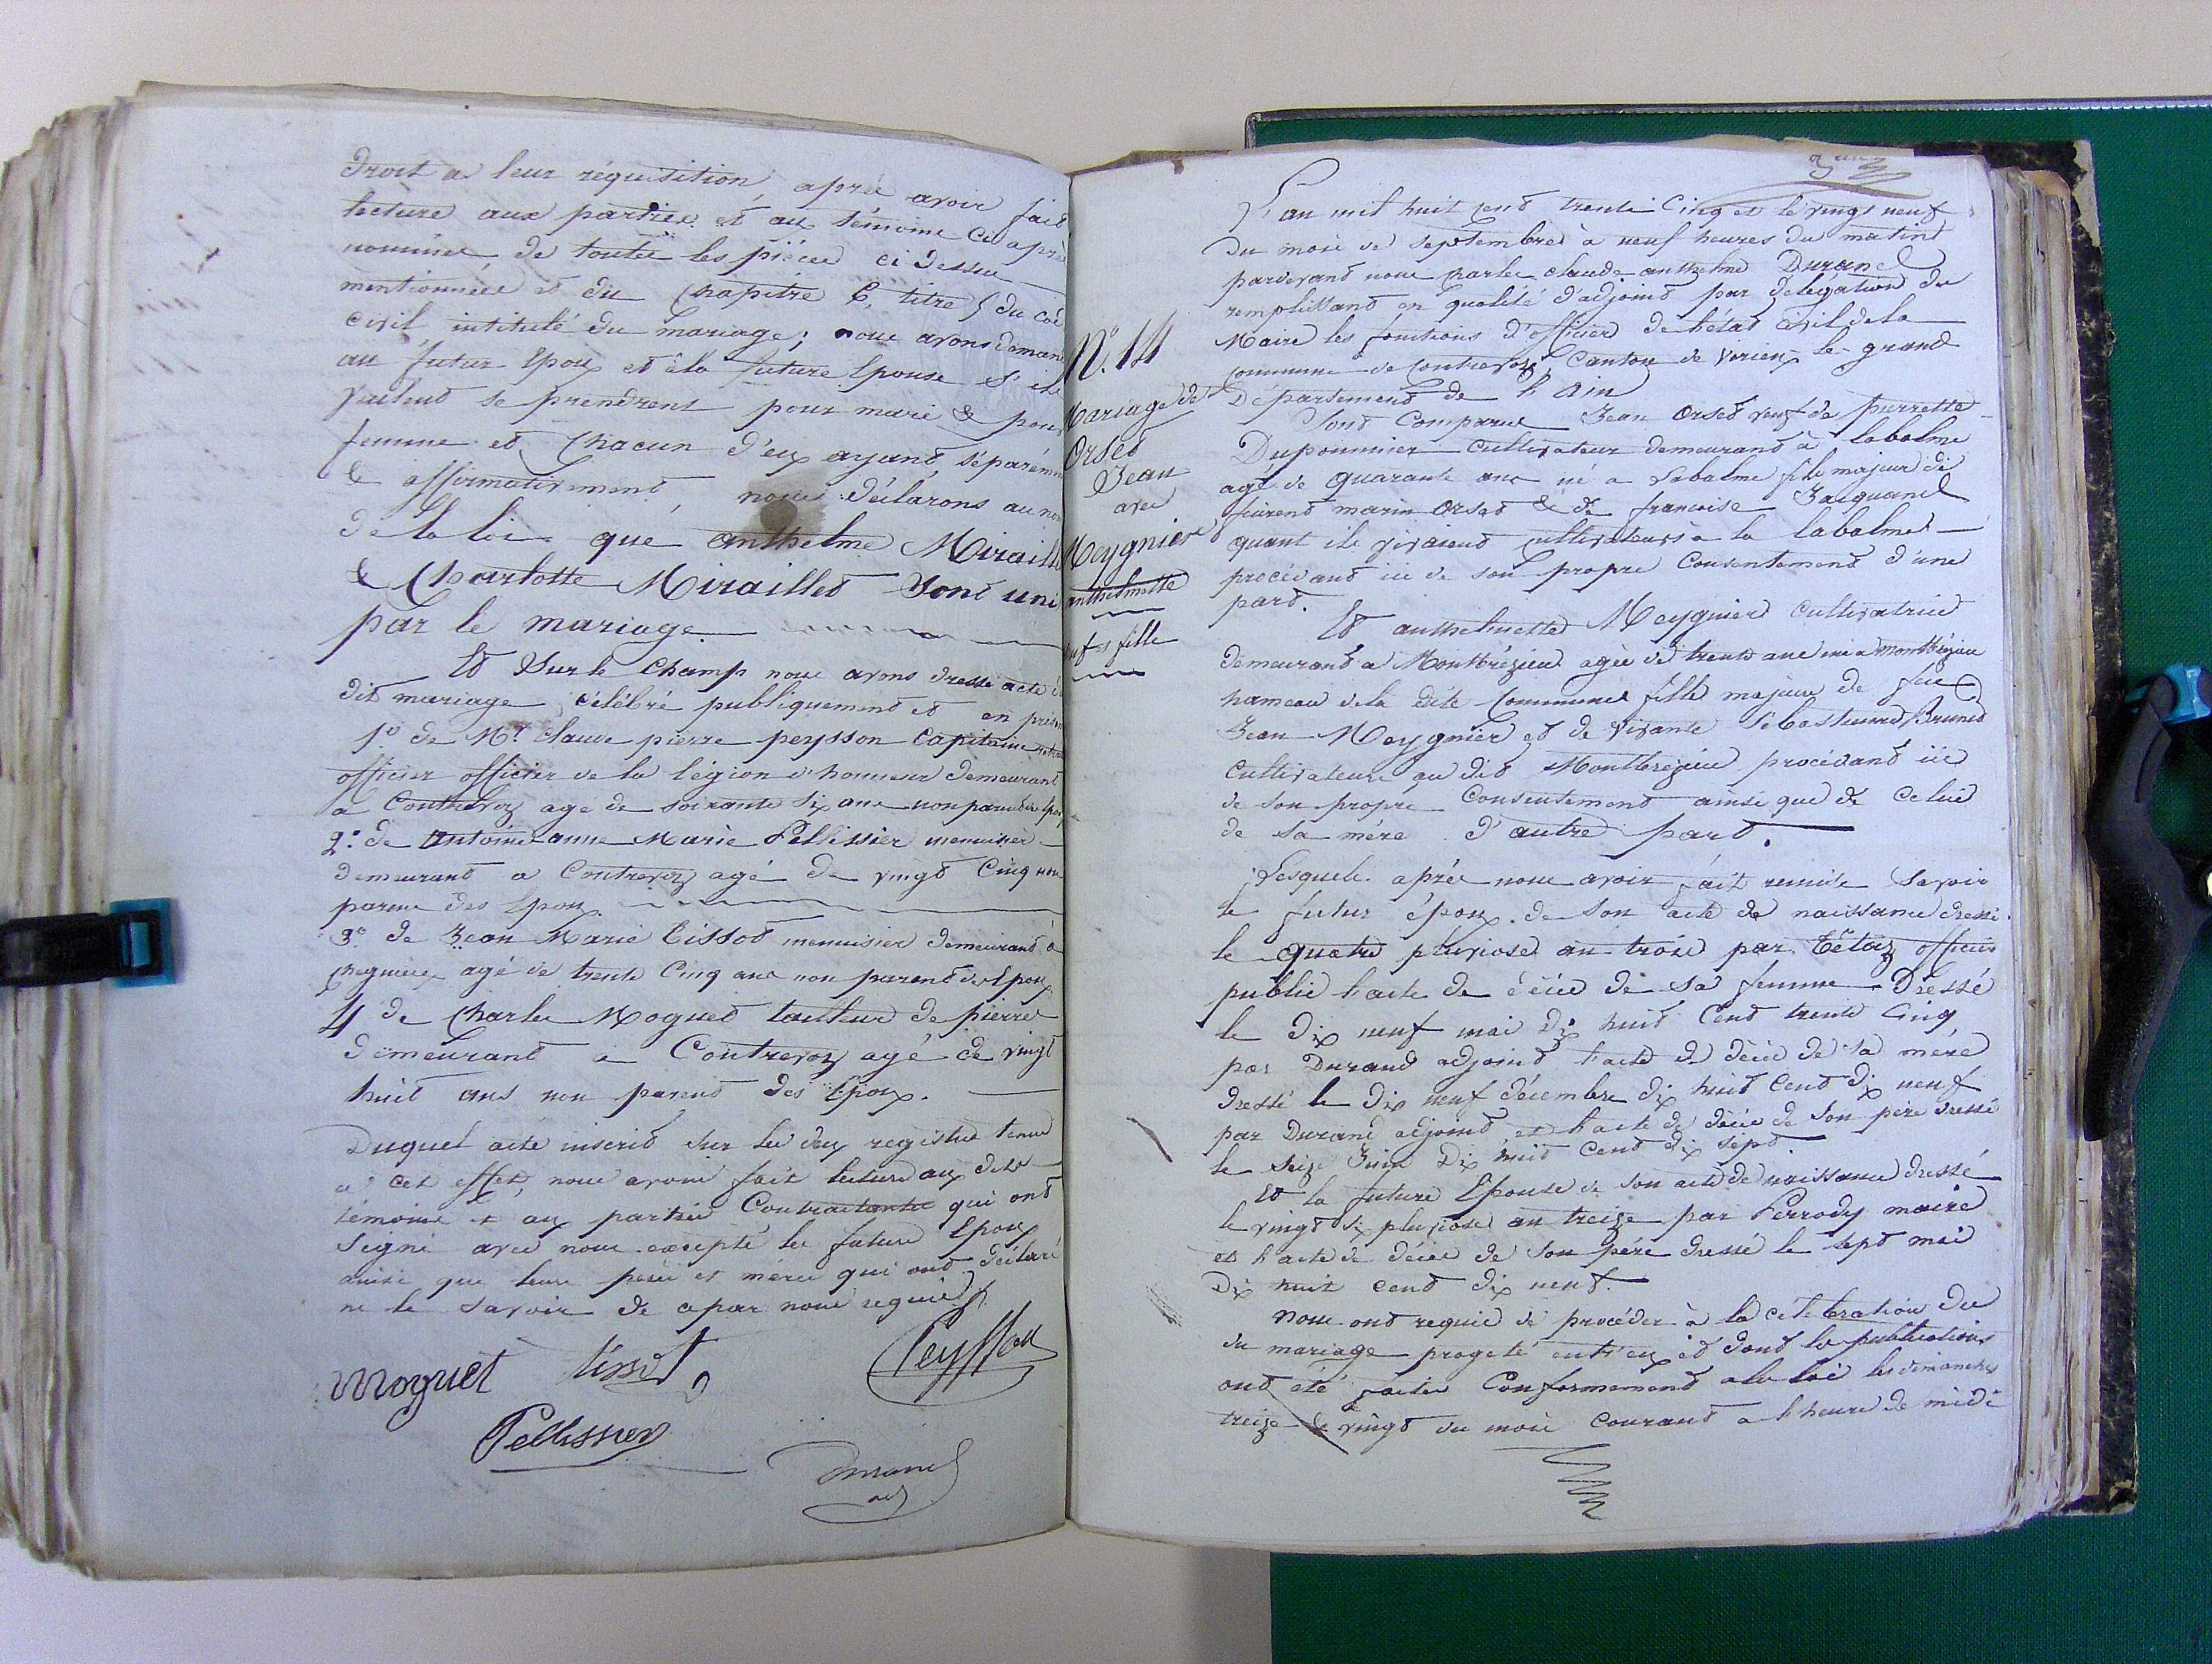 Droit a leur réquisition, après avoir fait
lecture aux parties et aux témoins ci après
nommés, de toutes les pièces ci dessus
mentionnées et du Chapitre 6, titre 5 du Cod
civil intitulé du mariage; nous avons deman
au futur Epoux et à la future Epouse s'ils
veulent se prendrent pour mari & pour
femme et Chacun d'eux ayant séparémen
& affirmativement, nous déclarons au nom
de la loi que anthelme Miraill
& Charlotte Miraillet Sont uni
par le mariage.
Et Sur le Champ nous avons dressé acte d
dit mariage, célébré publiquement et en prése
1º de Mr Claude pierre peysson Capitaine
officier officier de la légion d'honneur demeurant
a Contrevoz agé de soixante six ans non
2º de antoine anne Marie Pellissier menuisier
demeurant a Contrevoz agé de vingt Cinq non
parent des Epoux.
3º de Jean Marie Tissot menuisier demeurant à
Cheignieux agé de trente Cinq ans non parent des Epoux
4 de Charles Moguet tailleur de pierre
demeurant a Contrevoz agé de vingt
huit ans non parent des Epoux.
Duquel acte inscrit sur les deux registres tenus
a cet effet, nous avons fait lecture aux dits
témoins & aux parties Contractantes qui ont
Signé avec nous excepté les futurs Epoux
ainsi que leurs pères et mères qui ont déclaré
ne le Savoir de apar nous requis.
Moguet Tissot Peysson
Pellissier
Durand
adj
Nº. 14
Mariage de
Orset
Jean
avec
Meygnier
anthelmette
veuf & fille
L'an mil huit cent trente Cinq et le vingt neuf
du mois de Septembre à neuf heures du matin
pardevant nous Charles Claude anthelme Durand
remplissant en qualité d'adjoint par délégation du
Maire les fonctions d'officier de l'état Civil de la
commune de Contrevoz, Canton de Virieux le grand
Département de l'Ain
Sont Comparus Jean Orset veuf de pierrette
Dupommier Cultivateur demeurant à labalme
agé de quarante ans né a Labalme fils majeur de
feurent marin Orset & de francoise Jacquand
quant ils vivaient cultivateurs à la labalme
procédant ici de son propre Consentement d'une
part.
Et anthelmette Meygnier Cultivatrice
demeurant a Montbrézieu agée de trente ans née a Montbrézieu
hameau de la dite Commune fille majeure de feu
Jean Meygnier et de vivante Sébastienne Brunet
Cultivateurs au dit Montbrézieu procédant ici
de son propre Consentement ainsi que de celui
de sa mère d'autre part.
Lesquels après nous avoir fait remise Savoir
le futur époux de son acte de naissance dressé
le quatre pluviose an trois par Tétaz officier
public l'acte de décès de sa femme Dressé
le dix neuf mai dix huit Cent trente Cinq
par Durand adjoint l'acte de décès de sa mère
dressé le dix neuf décembre dix huit Cent dix neuf
par Durand adjoint et l'acte de décès de Son père dressé
le Seize Juin dix huit Cent dix sept
Et la future Epouse de Son acte de naissance dressé
le vingt six pluviose an treize par Perrody maire
et l'acte de décès de Son père dressé le sept mai
Dix huit cent dix neuf.
Nous ont requis de procéder à la célébration du
du mariage progeté entr'eux et dont les publications
ont été faites Conformement a la loi les dimanches
treize & vingt du mois Courant a l'heure de midi